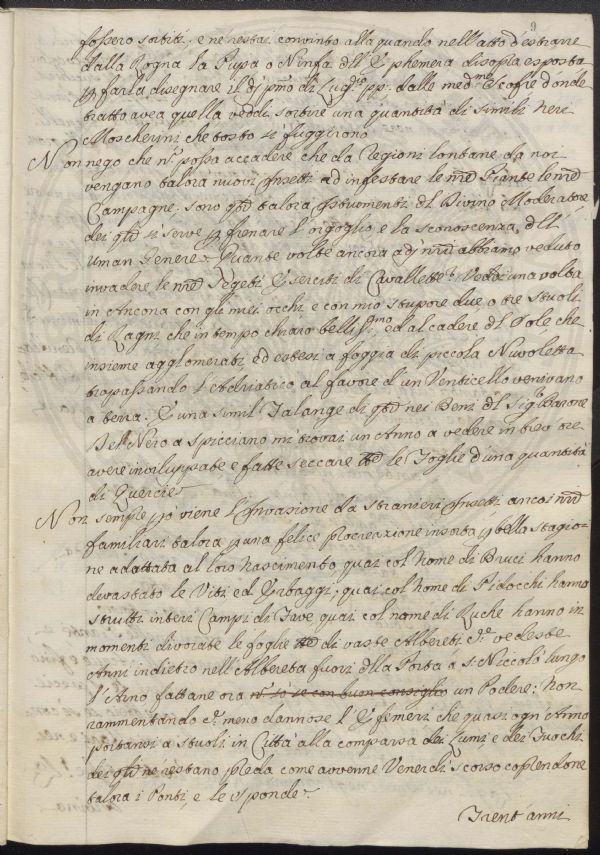 9
fossero sortiti, e ne restai convinto alla quando nell'atto d'estrarre
dalla Rogna la Pupa o Ninfa dll' Ephemera disopra esposta
p farla disegnare il dj pmo di Lugio pp: dalle medme Scorie donde
tratto avea quella veddi sortire una quantità di simili neri
Moscherini che tosto si fuggirono
Non nego che n: possa accadere che da Regioni lontane da noi
vengano talora nuovi Insetti ad infestare le nre Piante le nre
Campagne: sono qti talora Istrumenti dl Divino Moderatore
dei qli si serve p frenare l'orgoglio e la sconoscenza dll'
Uman Genere. Quante volte ancora a dj nri abbiamo veduto
invadere le nre Segeti Eserciti di Cavallette? Vedda una volta
in Ancona con gli miei occhi e con mio stupore due, o tre stuoli
di Ragni che in tempo chiaro bellissimo, ed al cadere dl Sole che
insieme agglomerati ed estesi a foggia di piccola Nuvoletta
trapassando l'Adriatico al favore d'un Venticello venivano
a terra. E una simil Falange di qti nei Beni dl Sigr Barone
Del Nero a Spicciano mi trovai un Anno a vedere in breve ore
avere inviluppate e fatte seccare le Foglie d'una quantità
di Quercie.
Non sempre po viene l'Invasione da stranieri Insetti ancor nri
familiari talora p una felice procreazione insorta p bella stagio-
ne adattata al loro nascimento, quai col Nome di Bruci hanno
devastato le Viti ed Erbaggi; quai col Nome di Pidocchi hanno
strutti interi Campi di Fave, quai col name di Ruche hanno in
momenti divorate le foglie di vaste Alberete Se vedeste
Anni indietro nell'Albereta fuori dlla Porta a S: Niccolò lungo
l'Arno fattane ora n: so se con buon consiglio un Podere: Non
rammentando co meno dannose l'Efemeri che quasi ogn'Anno
portansi a stuoli in Città alla comparsa dei Lumi e dei Fuochi
dei qli ne restano preda come avvenne Venerdi scorso coprendone
talora i Ponti, e le Sponde.
Trent'anni